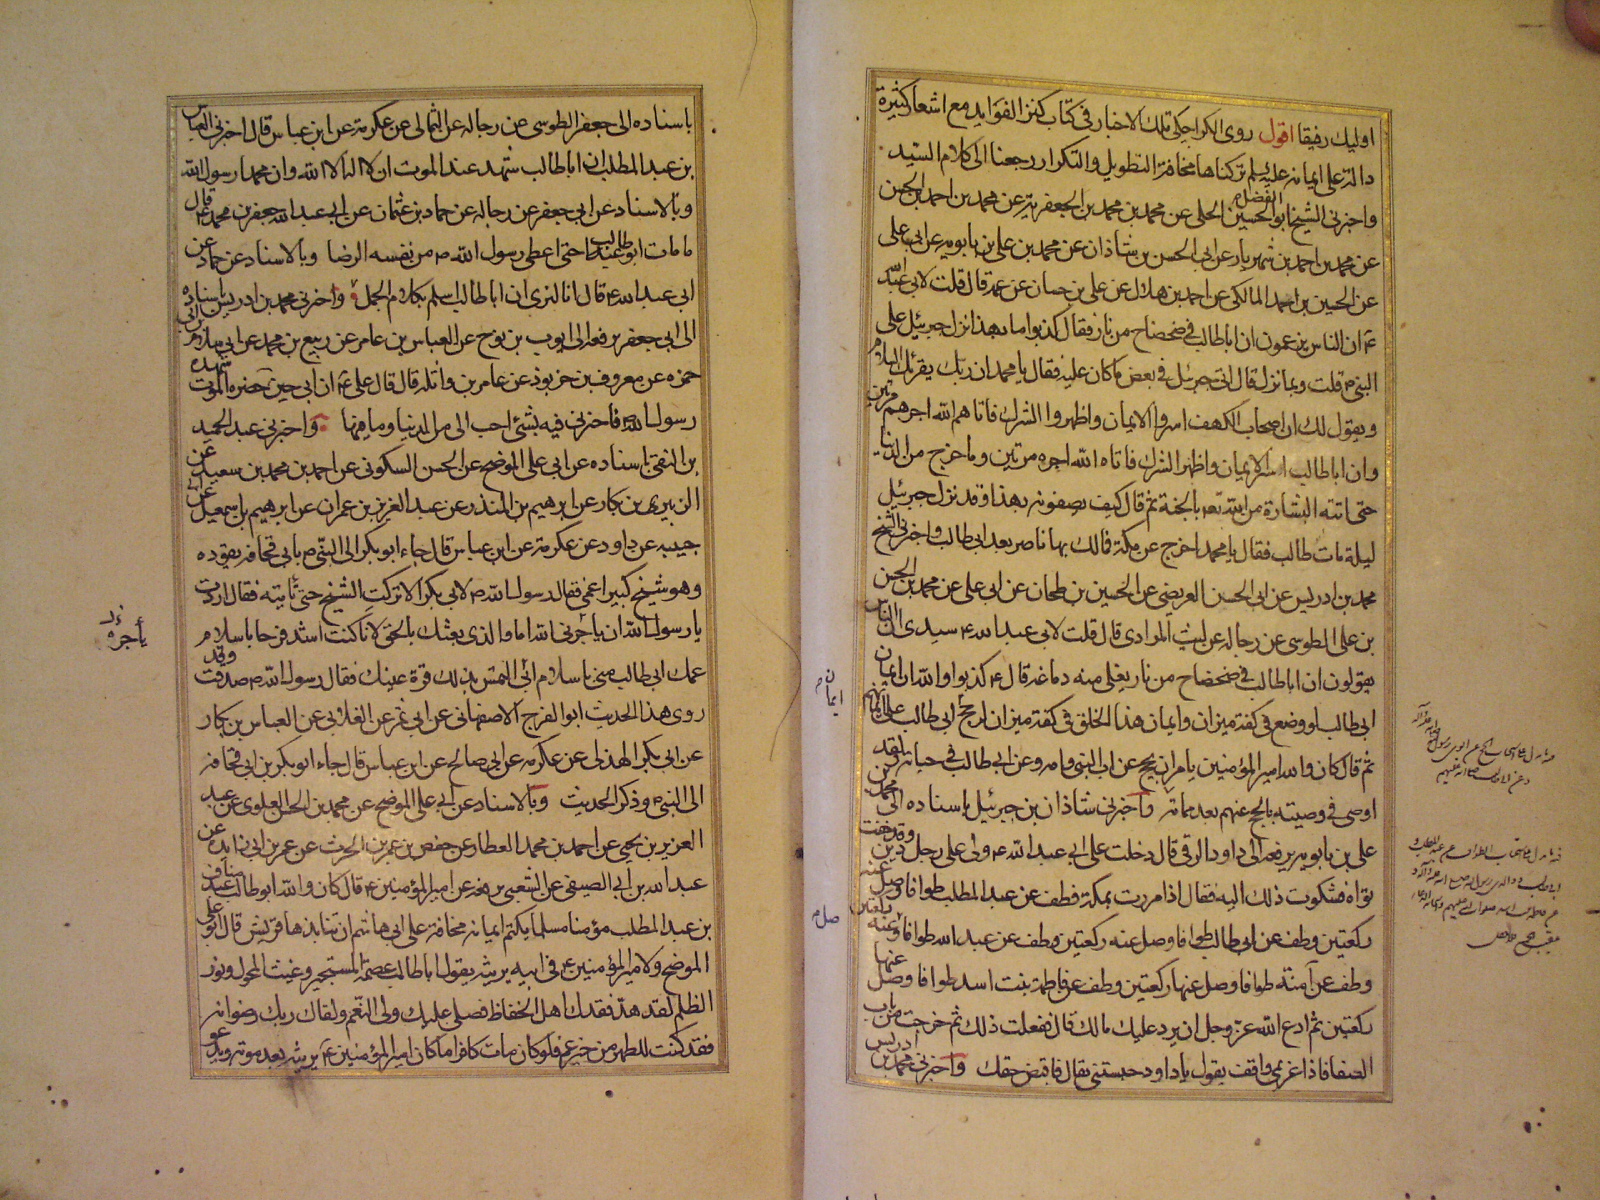 اولیك رفیقا اقول روى الكراجكی تلك الاخبار فی كتاب كنز الفوايد مع اشعار كثيرة
دالة على ايمانه عليه السلم تركناها مخافة التطويل والتكرار رجعنا الى كلام السيد
واخبرنی الشيخ ابو الفضل بن الحسين الحلی عن محمد بن محمد بن الجعفرية عن محمد بن احمد بن الحسن
عن محمد بن احمد بن شهريار عن ابی الحسن بن شاذان عن محمد بن علی بن بابويه عن ابی علی
عن الحسين بن احمد المالكی عن احمد بن هلال عن علی بن حسان عن عمه قال قلت لابی عبد الله
ع ان الناس يزعمون ان ابا طالب فی ضحضاح من نار فقال كذبوا ما بهذا نزل جبرئيل على
النبی ص قلت وبما نزل قال اتى جبرئيل فی بعض ما كان عليه فقال يا محمد ان ربك يقرئك السلام
ويقول لك ان اصحاب الكهف اسروا الايمان واظهروا الشرك فاتاهم الله اجرهم مرتين
وان ابا طالب اسر الايمان واظهر الشرك فاتاه الله اجره مرتين وما خرج من الدنيا
حتى اتته البشارة من الله تع بالجنة ثم قال كيف يصفونه بهذا وقد نزل جبرئيل
ليلة مات طالب فقال يا محمد اخرج عن مكة فما لك بها ناصر بعد ابی طالب واخبرنی الشيخ
محمد بن ادريس عن ابی الحسن العريضی عن الحسين بن طحان عن ابی علی عن محمد بن الحسن
بن علی الطوسی عن رجاله عن ليث المرادی قال قلت لابی عبد الله ع سيدی ان الناس
يقولون ان ابا طالب فی ضحضاح من نار يغلی منه دماغه قال ع كذبوا والله ان ايمان
ابی طالب لو وضع فی كفة ميزان وايمان هذا الخلق فی كفة ميزان لرجح ايمان ابی طالب على ايمانهم
ثم قال كان والله امير المؤمنين يامر ان يحج عن اب النبی وامه وعن ابی طالب فی حياته ولقد
اوصى فی وصيته بالحج عنهم بعد مماته واخبرنی شاذان بن جبرئيل باسناده الى محمد بن
علی بن بابويه يرفعه الى داود الرقی قال دخلت على ابی عبد الله ع ولی على رجل دين وقد خفت
تواه فشكوت ذلك اليه فقال اذا مررت بمكة فطف عن عبد المطلب طوافا وصل عنه
ركعتين وطف عن ابی طالب طوافا وصل عنه ركعتين وطف عن عبد الله طوافا وصل عنه ركعتين
وطف عن آمنة طوافا وصل عنها ركعتين وطف عن فاطمة بنت اسد طوافا وصل عنها
ركعتين ثم ادع الله عز وجل ان يرد عليك مالك قال ففعلت ذلك ثم خرجت من باب
الصفا فاذا غريمی واقف يقول يا داود حبستنی تعال فاقبض حقك واخبرنی محمد بن ادريس
ايمان
صل م
باسناده الى جعفر الطوسی عن رجاله عن الثمالی عن عكرمة عن ابن عباس قال اخبرنی العباس
بن عبد المطلب ان ابا طالب شهد عند الموت ان لا اله الا الله وان محمدا رسول الله
وبالاسناد عن ابی جعفر عن رجاله عن حماد بن عثمان عن ابی عبد الله جعفر بن محمد ع قال
ما مات ابو طالب حتى اعطى رسول الله ص من نفسه الرضا وبالاسناد عن حماد عن
ابی عبد الله ع قال انا لنرى ان ابا طالب اسلم بكلام الجمل واخبرنی محمد بن ادريس باسناده
الى ابی جعفر يرفعه الى ايوب بن نوح عن العباس بن عامر عن ربيع بن محمد عن ابی سلام بن ابی
حمزه عن معروف بن خربوذ عن عامر بن واثلة قال قال علی ع ان ابی حين حضره الموت شهده
رسول الله ص فاخبرنی فيه بشئ احب الی من الدنيا وما فيها واخبرنی عبد الحميد
بن التقی باسناده عن ابی علی الموضح عن الحسن السكونی عن احمد بن محمد بن سعيد عن
الزبيری بن بكار عن ابرهيم بن المنذر عن عبد العزيز بن عمران عن ابرهيم بن اسمعيل عن ابی
حبيبه عن داود عن عكرمة عن ابن عباس قال جاء ابو بكر الى النبی ص بابی قحافه يقوده
وهو شيخ كبير اعمى فقال رسول الله ص لابی بكر الا تركت الشيخ حتى ناتيه فقال اردت
يا رسول الله ان ياجرنی الله اما والذی بعثك بالحق لانا كنت اشد فرحا باسلام
عمك ابی طالب منی باسلام ابی التمس بذلك قرة عينك فقال رسول الله ص صدقت وقد
روى هذا الحديث ابو الفرج الاصفهانی عن ابی بشر عن الغلابی عن العباس بن بكار
عن ابی بكر الهذلی عن عكرمه عن ابی صالح عن ابن عباس قال جاء ابو بكر بن ابی قحافه
الى النبی ص وذكر الحديث وبالاسناد عن ابی علی الموضح عن محمد بن الحسن العلوی عن عبد
العزيز بن يحيى عن احمد بن محمد العطار عن حفص بن عمر بن الحرث عن عمر بن ابی زايده عن
عبد الله بن ابی الصيفی عن الشعبی يرفعه عن امير المؤمنين ع قال كان والله ابو طالب عبد مناف
بن عبد المطلب مؤمنا مسلما يكتم ايمانه مخافة على بنی هاشم ان تنابذها قريش قال ابو علی
الموضح ولامير المؤمنين ع فی ابيه يرثيه يقول ابا طالب عصمة المستجير وغيث المحول ونور
الظلم لقد هد فقدك اهل الحفاظ فصلى عليك ولی النعم ولقاك ربك رضوانه
فقد كنت للطهر من خير عم فلو كان مات كافرا ما كان امير المؤمنين ع يرثيه بعد موته ويدعو
ياجره